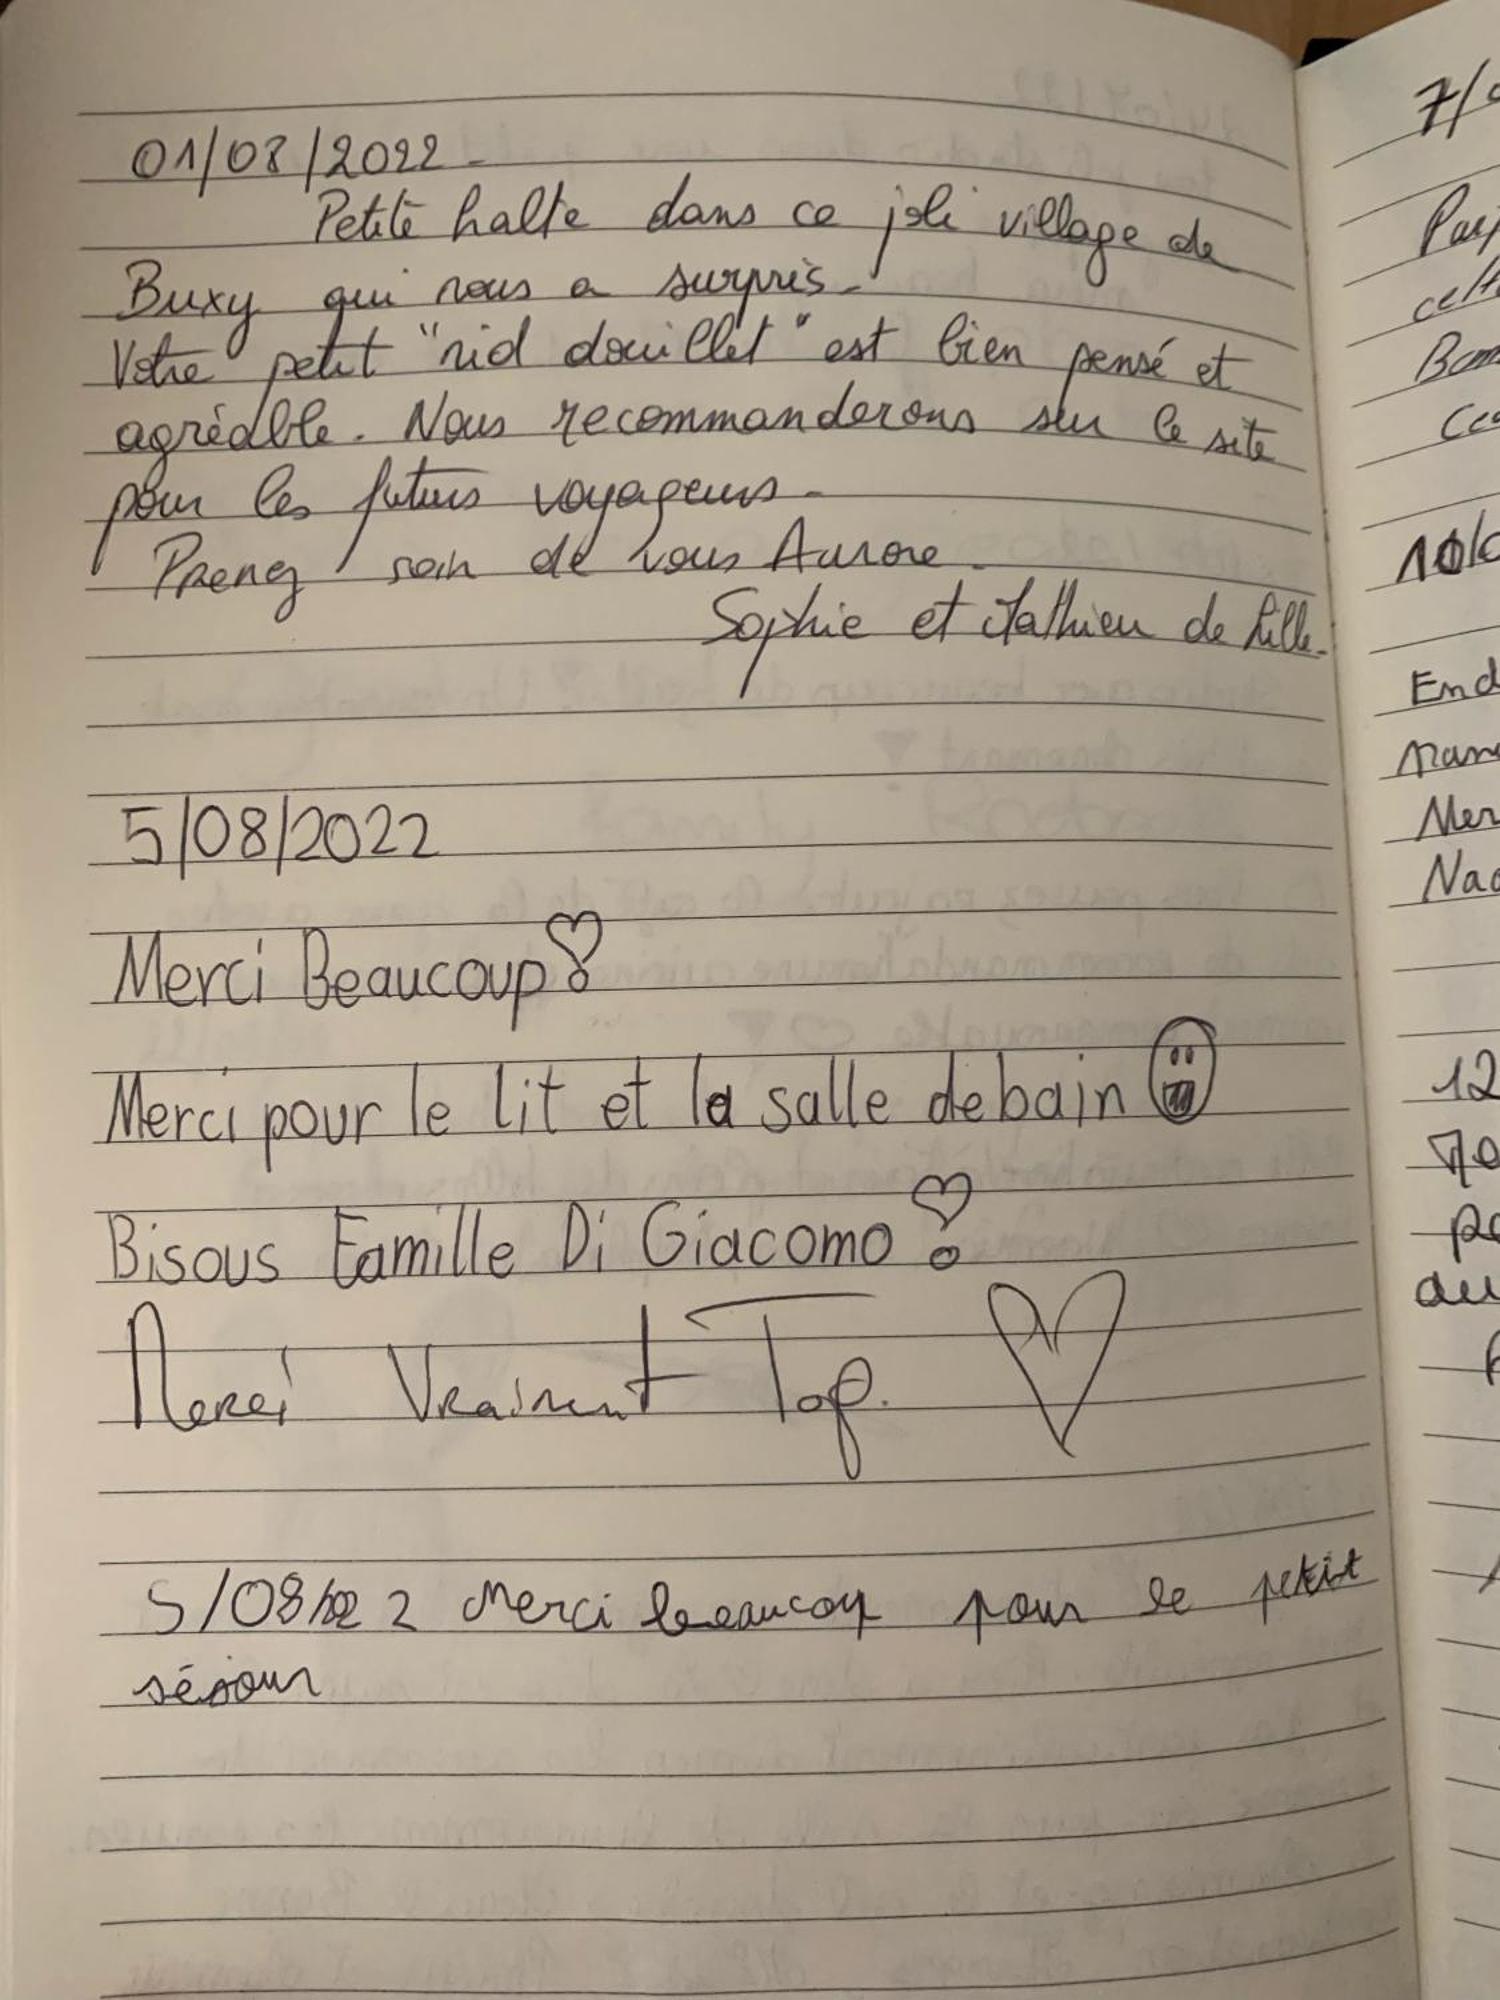 01/08/2022.
Petite halte dans ce joli village de
Buxy qui nous a surpris.
Votre petit "nid douillet" est bien pensé et
agréable. Nous recommanderons sur le site
pour les futurs voyageurs.
Prenez soin de vous Aurore.
Sophie et Mathieu de Lille.
5/08/2022
Merci Beaucoup!
Merci pour le lit et la salle de bain
Bisous Famille Di Giacomo!
Merci Vraiment Top.
5/08/2022 Merci beaucoup pour le petit
séjour
7/
cett
10/
End
Mer
12